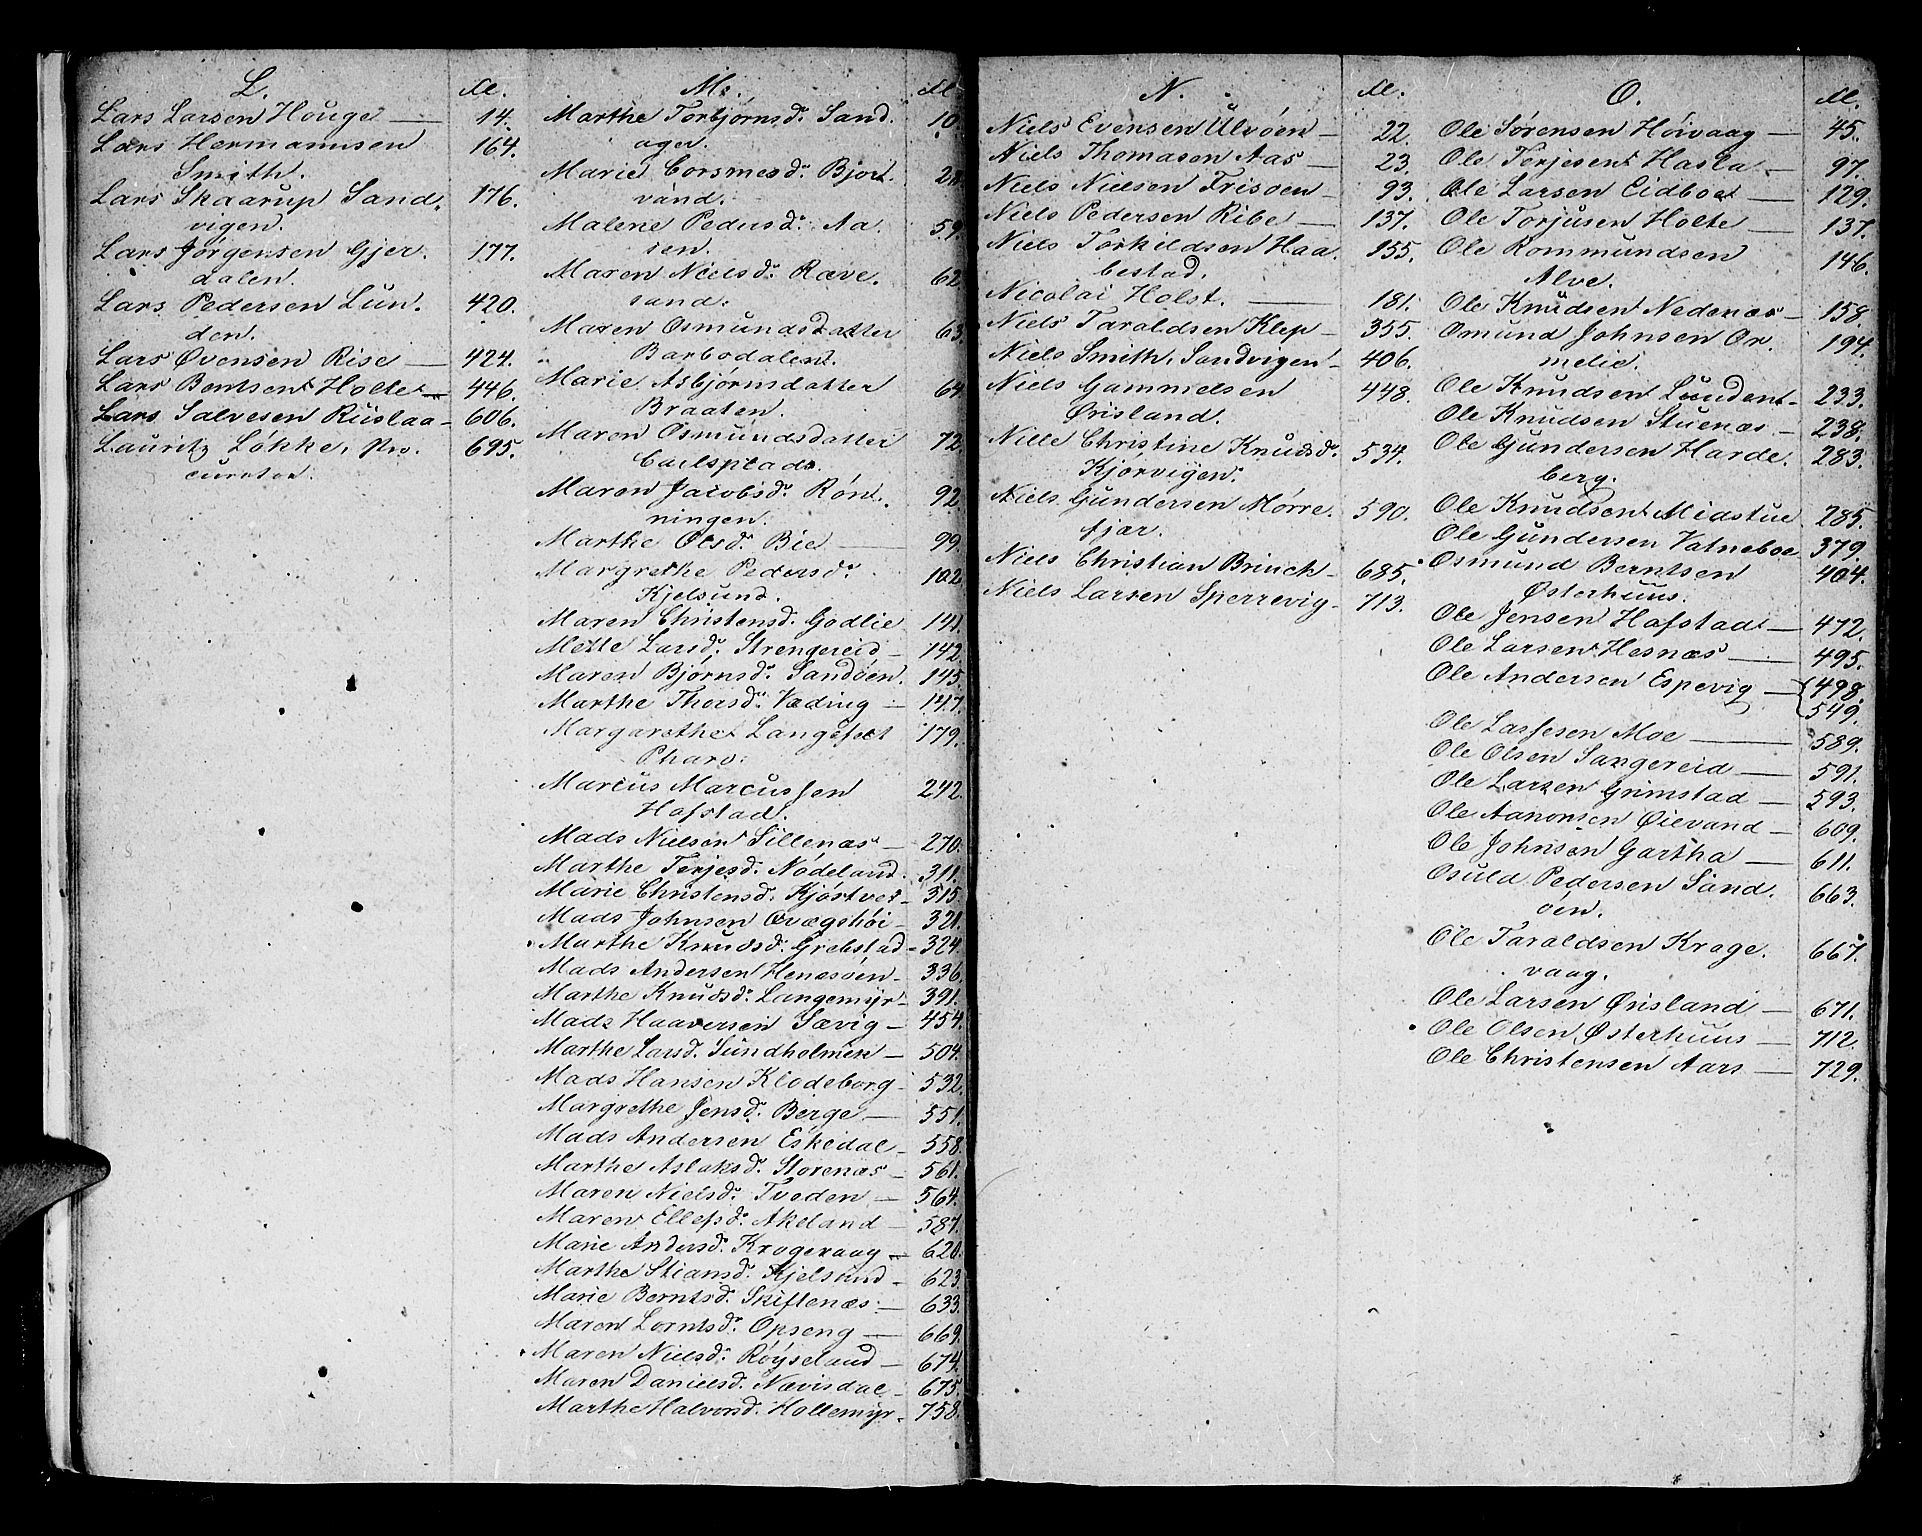 L.
Lars Larsen Houge — 14.
Lars Hermannsen 164.
Smith.
Lars Skaarup Sand. 176.
vigen.
Lars Jørgensen Gjer. 177.
dalen.
Lars Pedersen Lun. 420.
den.
Lars Øvensen Rise — 424.
Lars Bentsen Holte — 446.
Lars Salvesen Rüslaa — 606.
Lauritz Løkke, Pro. 695.
curator.
M.
Marthe Torbjørnsd. Sand. 10
ager.
Marie Corsmesd. Bjor.
vand.
Malene Pedersd. Aa. 59.
sen.
Maren Nielsd. Ræve. 62
sand.
Maren Osmundsdatter 63.
Barbodalen.
Marie Asbjørnsdatter 64
Braaten.
Maren Osmundsdatter 72
Carlsplads.
Maren Jacobsd. Røn. 92
ningen.
Marthe Olsd. Bie — 99.
Margrethe Pedersd. 102
Kjelsund.
Maren Christensd. Godlie 141.
Mette Larsd. Strengereid — 142.
Maren Bjørnsd. Sandøen. 145.
Marthe Thorsd. Væding — 147.
Margarethe Langefeet 179.
Pharo.
Marcus Marcussen 242.
Hafstad.
Mads Nielsen Sillenæs — 270.
Marthe Terjesd. Nødeland. 311.
Marie Christensd. Kjøstvet — 315.
Mads Johnsen Qvægshøi — 321.
Marthe Knudsd. Grebstad — 324.
Mads Andersen Henesøen — 336.
Marthe Knudsd. Langemyr — 391.
Mads Haaversen Sævig — 454.
Marthe Larsd. Sundholmen — 504.
Mads Hansen Klodeborg — 532.
Margrethe Jensd. Berge — 551.
Mads Andersen Eskedal — 558.
Marthe Aslaksd. Storenæs — 561.
Maren Nielsd. Tveden — 564.
Maren Ellefsd. Akeland — 587.
Marie Andersd. Krogevaag — 620.
Marthe Stiansd. Kjelsund — 623.
Marie Berntsd. Skiftenæs — 633.
Maren Lorntsd. Opseng — 669.
Maren Nielsd. Røyseland — 674.
Maren Danielsd. Nævisdal — 675.
Marthe Halvorsd. Hollemyr. 758.
N.
Niels Evensen Ulvøen — 22.
Niels Thomasen Aas — 23.
Niels Nielsen Frisøen — 93.
Niels Pedersen Ribe — 137.
Niels Torkildsen Haa. 155.
bestad.
Nicolai Holst. — 181.
Niels Taraldsen Klep — 355.
Niels Smith, Sandvigen — 406.
Niels Gammelsen 448.
Ørisland.
Nille Christine Knudsd. 534.
Kjørvigen.
Niels Gundersen Mørre. 590.
fjær.
Niels Christian Brinck — 685.
Niels Larsen Sperrevig — 713.
O.
Ole Sørensen Høivaag — 45.
Ole Terjesen Hasla — 97.
Ole Larsen Eidboe — 129.
Ole Torjusen Holte — 137.
Ole Rommundsen 146.
Alve.
Ole Knudsen Nedenæs — 158.
Osmund Johnsen Or. 194.
melie.
Ole Knudsen Lunden — 233.
Ole Knudsen Stuenæs — 238.
Ole Gundersen Harde. 283.
berg.
Ole Knudsen Midstue 285.
Ole Gundersen Vatneboe 379.
Osmund Berntsen 404.
Østerhuus.
Ole Jensen Hafstad — 472.
Ole Larsen Hesnæs — 495.
Ole Andersen Espevig — 498.
549.
Ole Lassesen Moe — 589.
Ole Olsen Sangereid — 591.
Ole Larsen Grimstad — 593.
Ole Aanonsen Øievand — 609.
Ole Johnsen Gartha — 611.
Osuld Pedersen Sand. 663.
øen.
Ole Taraldsen Kroge. 667.
vaag.
Ole Larsen Ørisland — 671.
Ole Olsen Østerhuus — 712.
Ole Christensen Aars — 729.